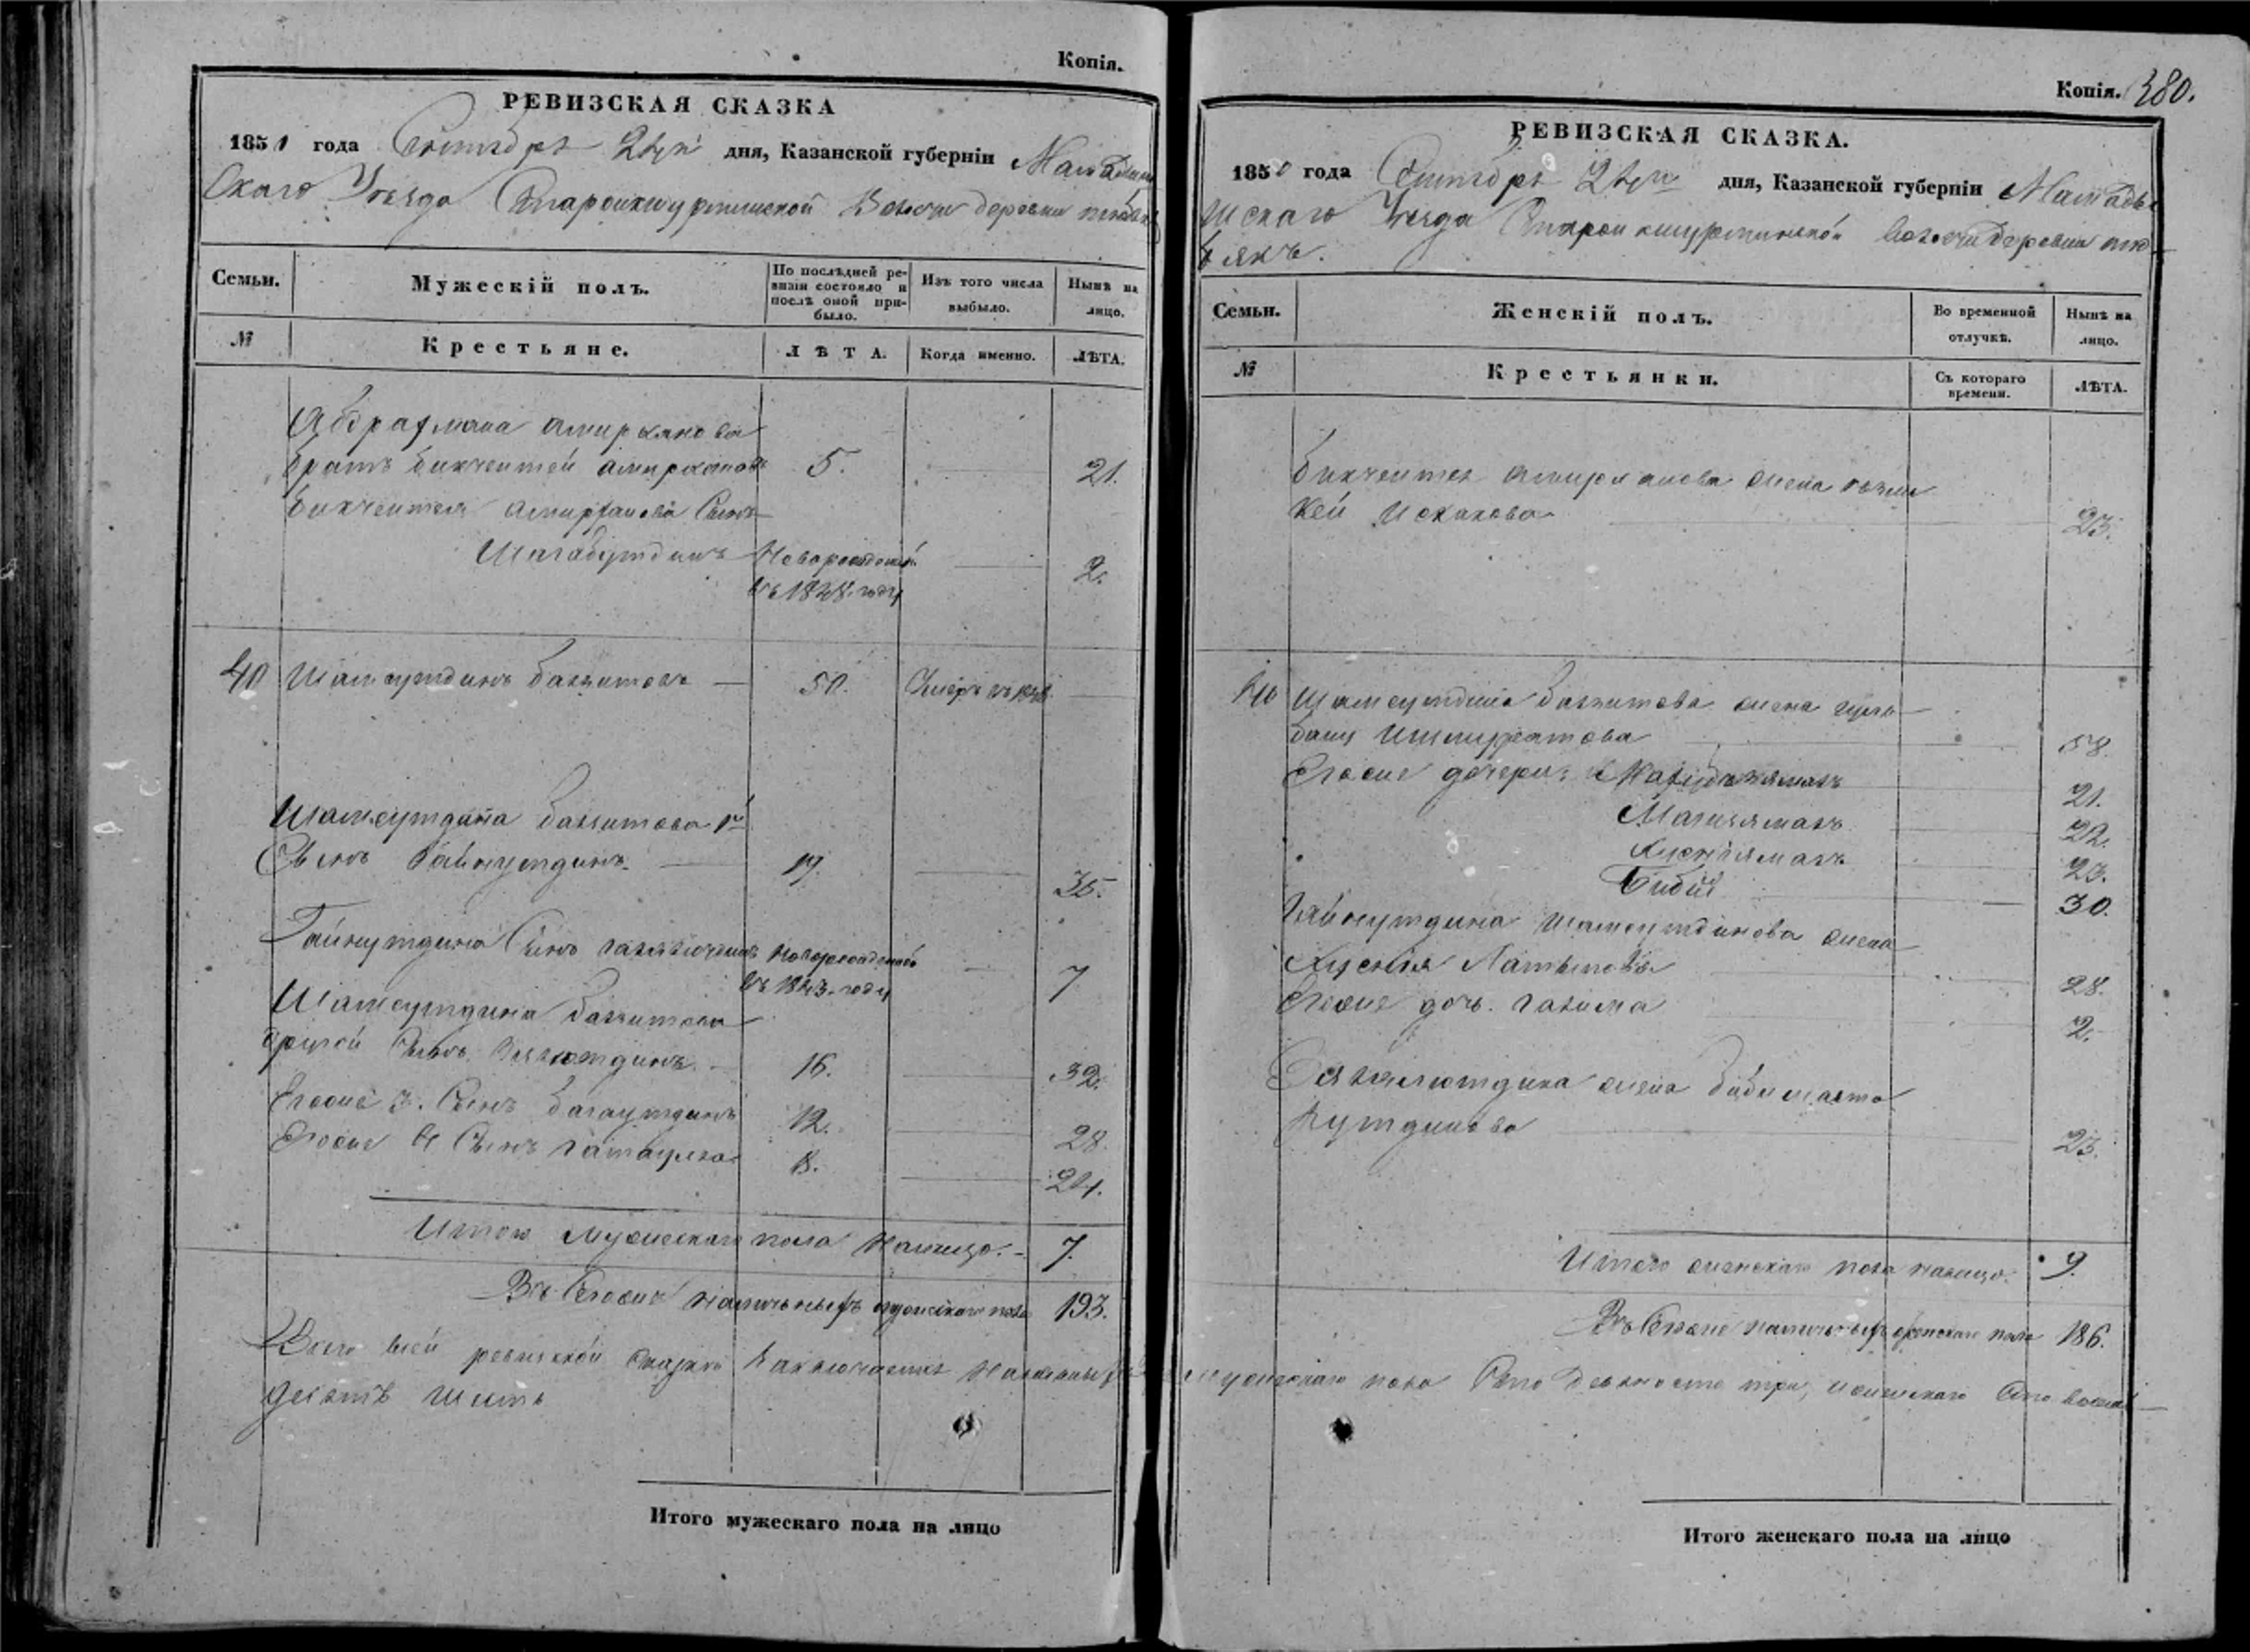 Копія.
РЕВИЗСКАЯ СКАЗКА
1850 года Сентября 24го дня, Казанской губерніи Мамадыш
скаго Уѣзда Староикшурминской Волости деревни
Семьи.
Мужескій полъ.
По послѣдней ре-
визіи состояло и
послѣ оной при-
было.
Изъ того числа
выбыло.
Нынѣ на
лицо.
№
Крестьяне.
ЛѢТА.
Когда именно.
ЛѢТА.
Абдрахмана Амирханова
братъ Бикчентей Амирхановъ 5. 21.
Бикчентея Амирханова Сынъ
Шагабутдинъ Новорожденный 2.
въ 1848 году
40 Шамсутдинъ Вахитовъ 50. Умеръ въ
Шамсутдина Вахитова 1й
Сынъ Гайнутдинъ 19. 35.
Гайнутдина Сынъ новорожденный 7
въ 1843 году
Шамсутдина Вахитова
другой Сынъ 16. 32.
Егоже 3. Сынъ Багаутдинъ 12. 28.
Егоже 4 Сынъ Гатаулла 8. 24.
Итого Мужескаго пола налицо 7.
Въ Селеніи наличныхъ мужескаго пола 193.
Всего въ сей ревизской сказкѣ заключается наличныхъ
десятъ шесть
Итого мужескаго пола на лицо
Копія. 380.
РЕВИЗСКАЯ СКАЗКА.
1850 года Сентября 24го дня, Казанской губерніи Мамады
шскаго Уѣзда Староикшурминской Волости деревни
Семьи.
Женскій полъ.
Во временной
отлучкѣ.
Нынѣ на
лицо.
№
Крестьянки.
Съ котораго
времени.
ЛѢТА.
Бикчентея Амирханова жена
Искакова 23.
40 Шамсутдина Вахитова жена Гуль
бану Ишмуратова 58.
Егоже дочери: 21.
22.
23.
Биби 30.
Гайнутдина Шамсутдинова жена
Хусния Латыпова 28.
Егоже дочь Галима 2.
жена
кутдинова 23.
Итого женскаго пола налицо. 9.
Въ Селеніи наличныхъ женскаго пола 186.
мужескаго пола Сто девяносто три, женскаго Сто восемь
Итого женскаго пола на лицо